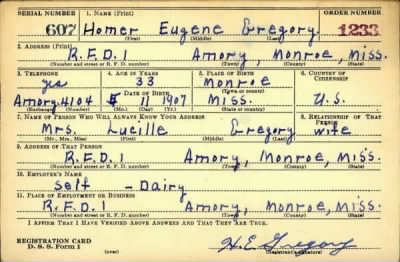 SERIAL NUMBER 1. NAME (Print) ORDER NUMBER
607 Homer Eugene Gregory 1233
(First) (Middle) (Last)
2. ADDRESS (Print)
R.F.D. 1 Amory, Monroe, Miss.
(Number and street or R. F. D. number) (Town) (County) (State)
3. TELEPHONE 4. AGE IN YEARS 5. PLACE OF BIRTH 6. COUNTRY OF CITIZENSHIP
yes 33 Monroe
DATE OF BIRTH (Town or county)
Amory 4104 11 1907 Miss. U.S.
(Exchange) (Number) (Mo.) (Day) (Yr.) (State or country)
7. NAME OF PERSON WHO WILL ALWAYS KNOW YOUR ADDRESS 8. RELATIONSHIP OF THAT PERSON
Mrs. Lucille Gregory wife
(Mr., Mrs., Miss) (First) (Middle) (Last)
9. ADDRESS OF THAT PERSON
R.F.D. 1 Amory, Monroe, Miss.
(Number and street or R. F. D. number) (Town) (County) (State)
10. EMPLOYER'S NAME
Self - Dairy
11. PLACE OF EMPLOYMENT OR BUSINESS
R.F.D. 1 Amory, Monroe, Miss.
(Number and street or R. F. D. number) (Town) (County) (State)
I AFFIRM THAT I HAVE VERIFIED ABOVE ANSWERS AND THAT THEY ARE TRUE.
REGISTRATION CARD
D. S. S. Form 1 (over) H.E. Gregory
(Registrant's signature)